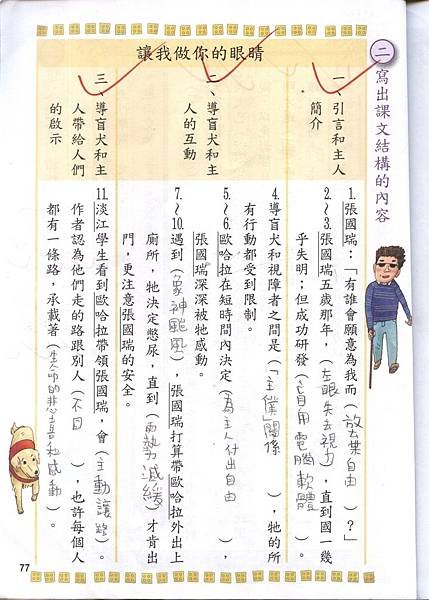 二 寫出課文結構的內容
讓我做你的眼睛
一、引言和主人
簡介
二、導盲犬和主
人的互動
三、導盲犬和主
人帶給人們
的啟示
1.張國瑞：「有誰會願意為我而（放棄自由）？」
2.～3.張國瑞五歲那年，（左眼失去視力），直到國一幾
乎失明；但成功研發（盲用電腦軟體）。
4.導盲犬和視障者之間是（「主僕」關係），牠的所
有行動都受到限制。
5.～6.歐哈拉在短時間內決定（為主人付出自由），
張國瑞深深被牠感動。
7.～10.遇到（象神颱風），張國瑞打算帶歐哈拉外出上
廁所，牠決定憋尿，直到（雨勢減緩）才肯出
門，更注意張國瑞的安全。
11.淡江學生看到歐哈拉帶領張國瑞，會（主動讓路）。
作者認為他們走的路跟別人（不同），也許每個人
都有一條路，承載著（生命的悲喜和感動）。
77